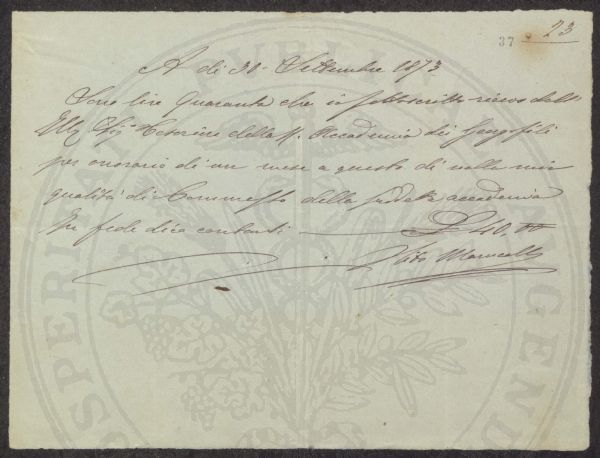 37 23
A dì 30. Settembre 1873
Sono lire Quaranta che io sottoscritto ricevo dall'
Ill. Sig. della R. Accademia dei Georgofili
per onorario di un mese a questo dì nella mia
qualità di Commesso della suddetta accademia
In fede dico contanti £ 40,00
Vito
PROSPERITÀ